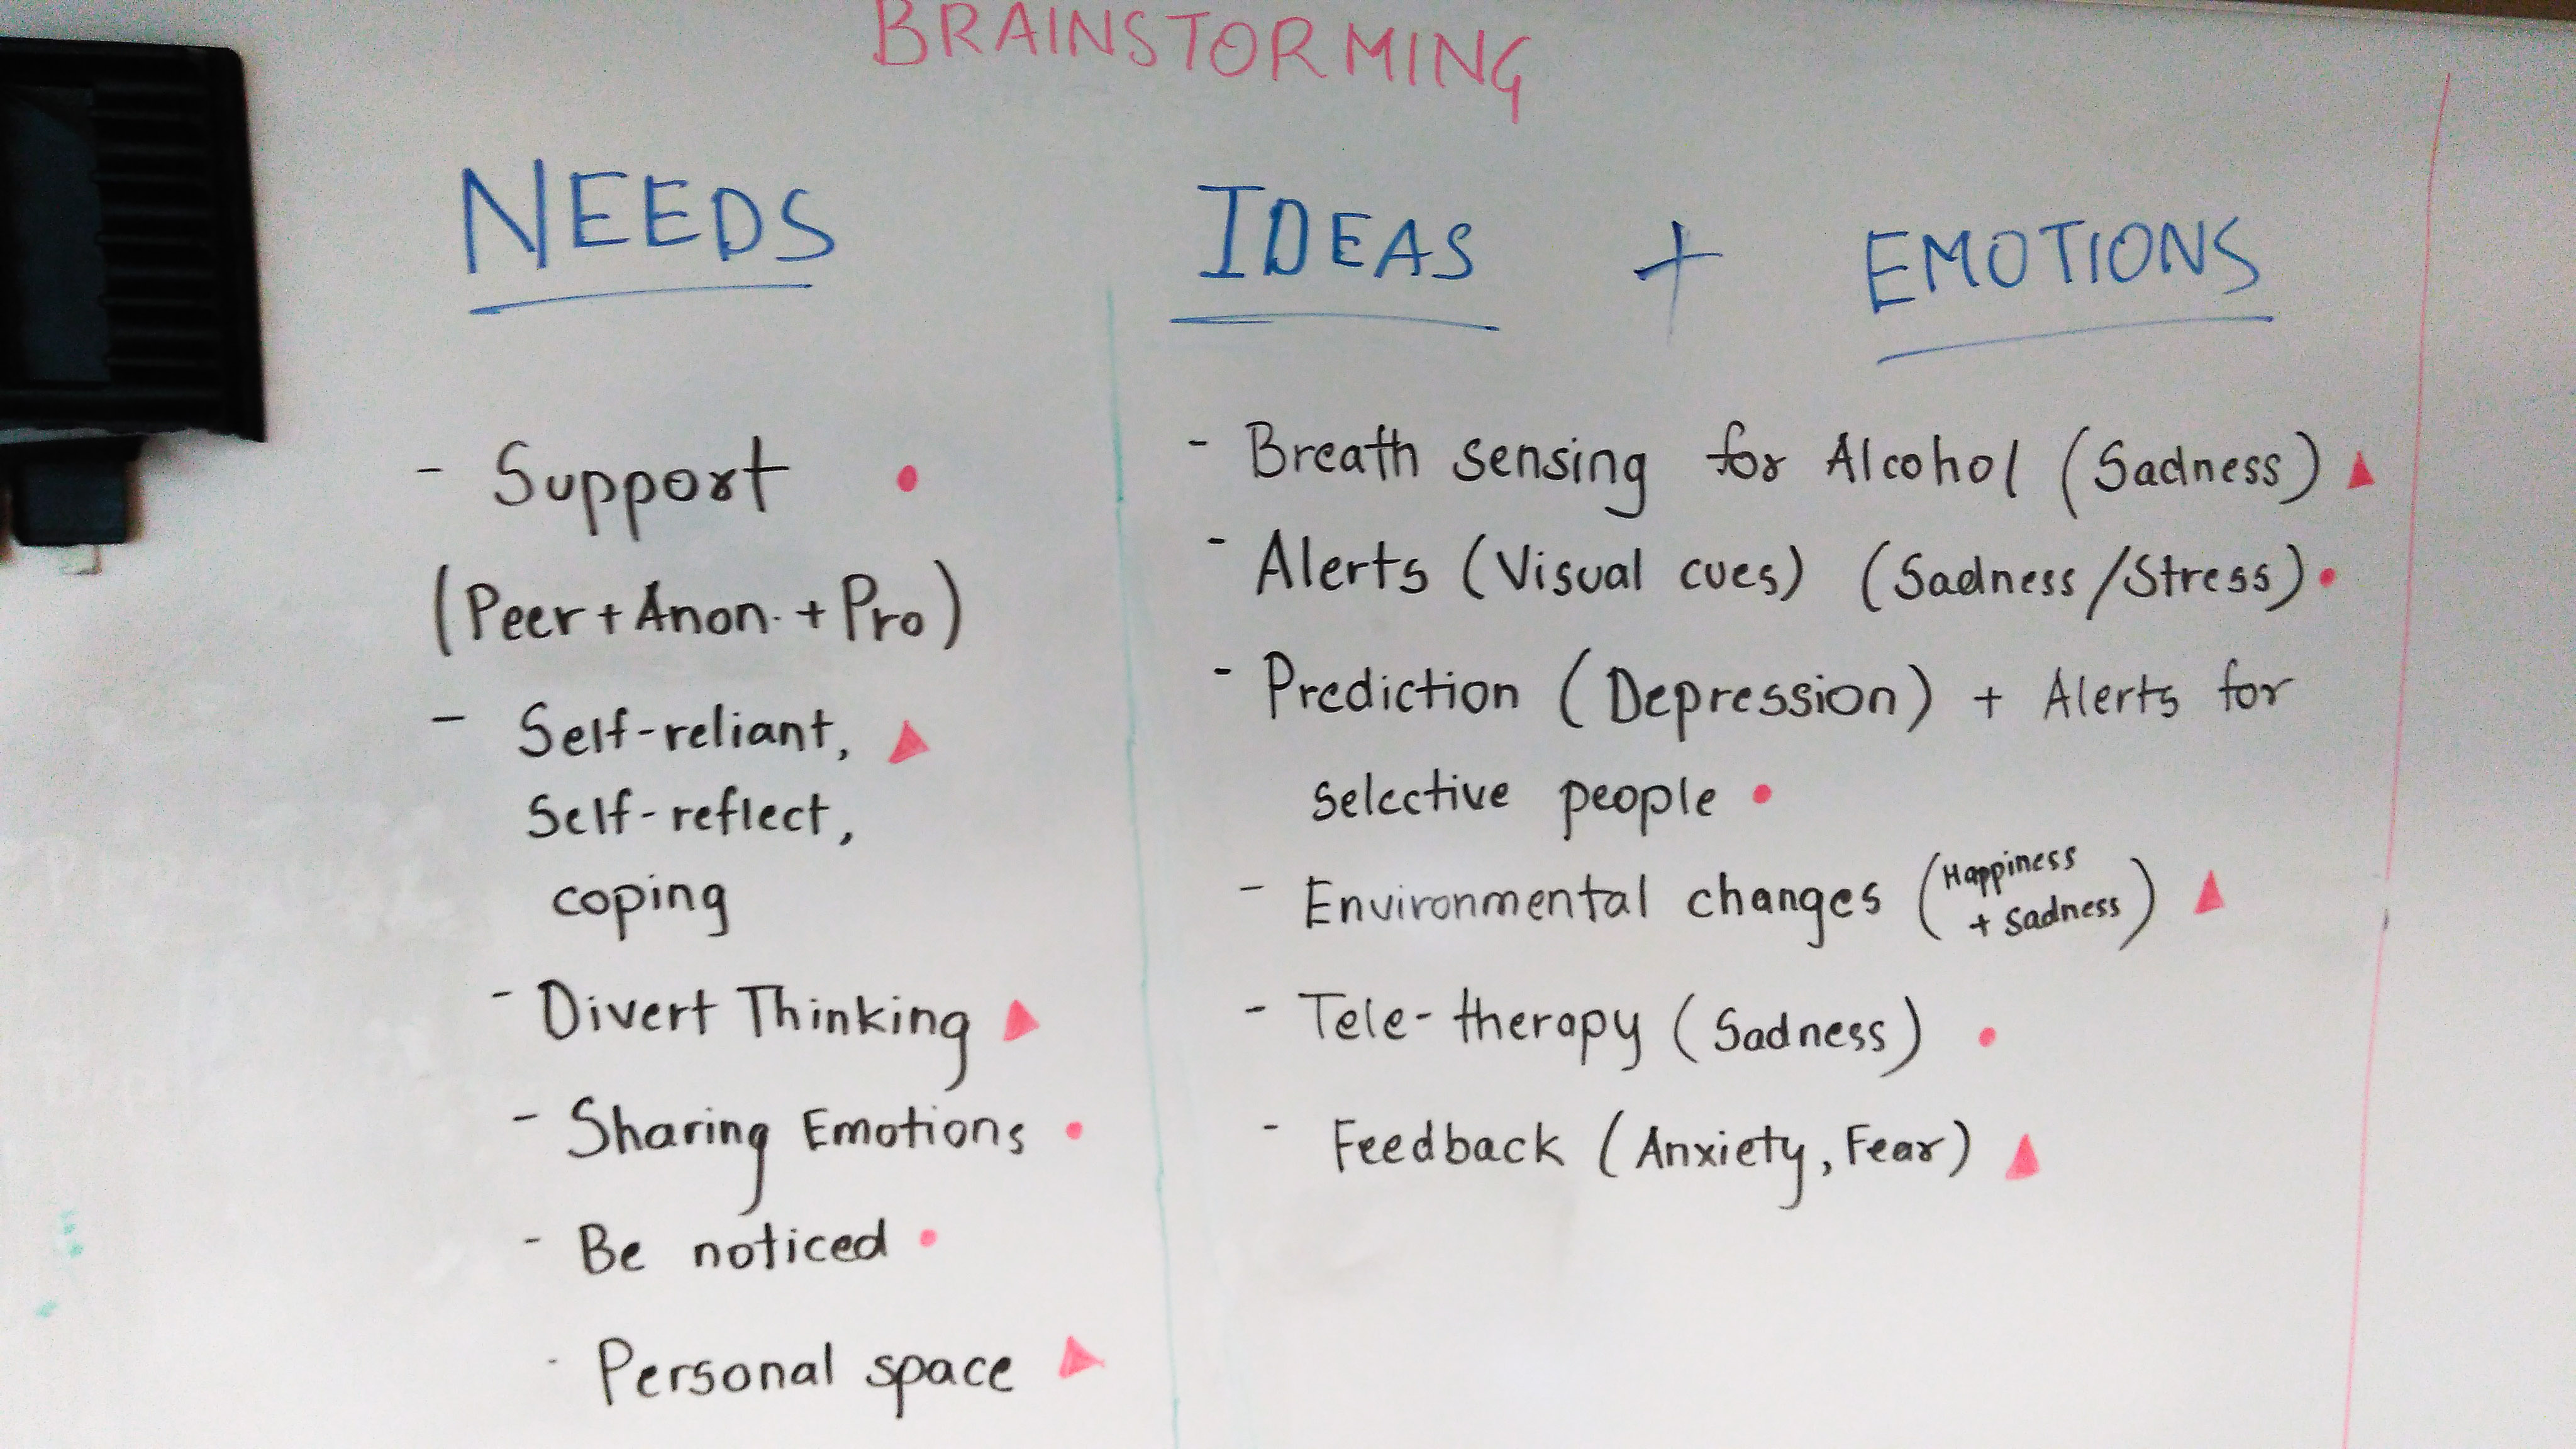 BRAINSTORMING
NEEDS
- Support
(Peer + Anon. + Pro)
- Self-reliant,
Self-reflect,
coping
- Divert Thinking
- Sharing Emotions
- Be noticed
- Personal space
IDEAS + EMOTIONS
- Breath sensing for Alcohol (Sadness)
- Alerts (Visual cues) (Sadness/Stress)
- Prediction (Depression) + Alerts for
selective people
- Environmental changes (Happiness
+ Sadness)
- Tele-therapy (Sadness)
- Feedback (Anxiety, Fear)